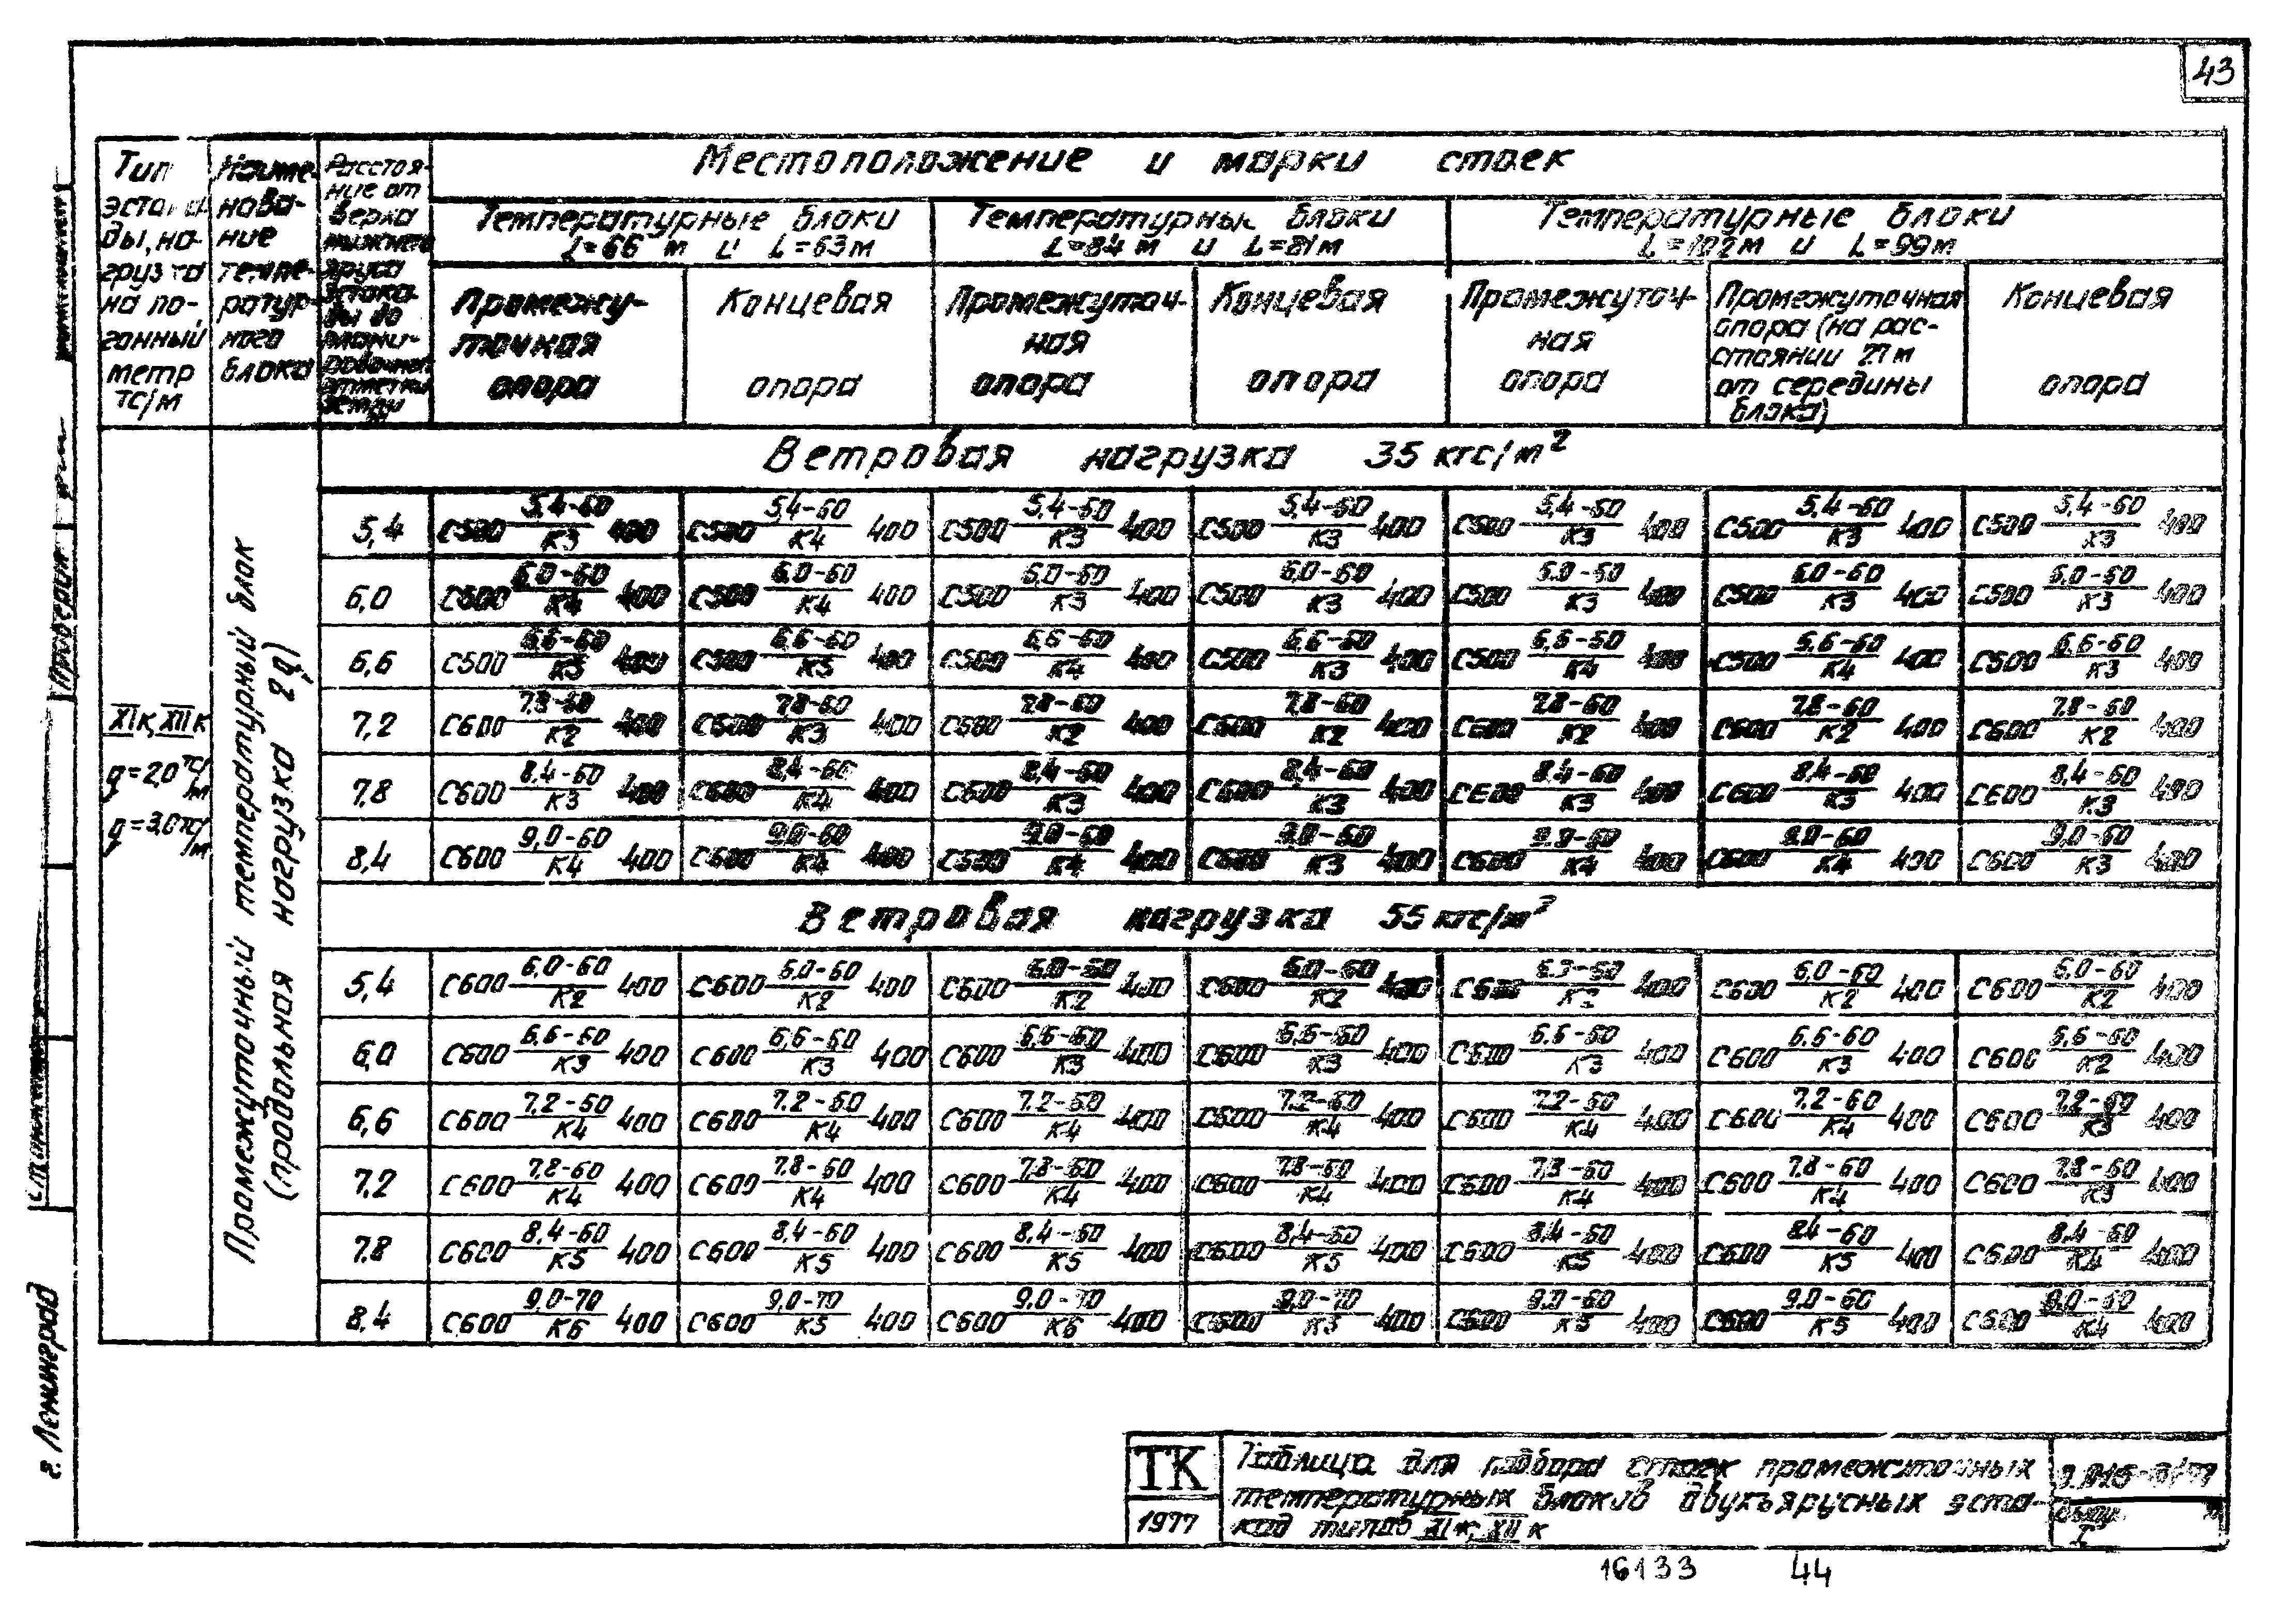 43
Местоположение и марки стоек
Тип эстакады, нагрузка на погонный метр тс/м
Наименование температурного блока
Расстояние от верха нижнего яруса эстакады до планировочной отметки земли м
Температурные блоки L=66 м и L=63м
Температурные блоки L=84 м и L=81м
Температурные блоки L=102м и L=99м
Промежуточная опора
Концевая опора
Промежуточная опора
Концевая опора
Промежуточная опора
Промежуточная опора (на расстоянии 21м от середины блока)
Концевая опора
XIк, XIIк
q=2,0 тс/м
q=3,0 тс/м
Промежуточный температурный блок
(продольная нагрузка 2q)
Ветровая нагрузка 35 кгс/м²
5,4 С500 5,4-60/К3 400 С500 5,4-60/К4 400 С500 5,4-60/К3 400 С500 5,4-60/К3 400 С500 5,4-60/К3 400 С500 5,4-60/К3 400 С500 5,4-60/К3 400
6,0 С500 6,0-60/К4 400 С500 6,0-60/К4 400 С500 6,0-60/К3 400 С500 6,0-60/К3 400 С500 6,0-60/К3 400 С500 6,0-60/К3 400 С500 6,0-60/К3 400
6,6 С500 6,6-60/К5 400 С500 6,6-60/К5 400 С500 6,6-60/К4 400 С500 6,6-60/К3 400 С500 6,6-60/К4 400 С500 6,6-60/К4 400 С500 6,6-60/К3 400
7,2 С600 7,8-60/К2 400 С600 7,8-60/К3 400 С600 7,8-60/К2 400 С600 7,8-60/К2 400 С600 7,8-60/К2 400 С600 7,8-60/К2 400 С600 7,8-60/К2 400
7,8 С600 8,4-60/К3 400 С600 8,4-60/К4 400 С600 8,4-60/К3 400 С600 8,4-60/К3 400 С600 8,4-60/К3 400 С600 8,4-60/К3 400 С600 8,4-60/К3 400
8,4 С600 9,0-60/К4 400 С600 9,0-60/К4 400 С600 9,0-60/К4 400 С600 9,0-60/К3 400 С600 9,0-60/К4 400 С600 9,0-60/К4 400 С600 9,0-60/К3 400
Ветровая нагрузка 55 кгс/м²
5,4 С600 6,0-60/К2 400 С600 6,0-60/К2 400 С600 6,0-60/К2 400 С600 6,0-60/К2 400 С600 6,0-60/К2 400 С600 6,0-60/К2 400 С600 6,0-60/К2 400
6,0 С600 6,6-60/К3 400 С600 6,6-60/К3 400 С600 6,6-60/К3 400 С600 6,6-60/К3 400 С600 6,6-60/К3 400 С600 6,6-60/К3 400 С600 6,6-60/К2 400
6,6 С600 7,2-60/К4 400 С600 7,2-60/К4 400 С600 7,2-60/К4 400 С600 7,2-60/К4 400 С600 7,2-60/К4 400 С600 7,2-60/К4 400 С600 7,2-60/К3 400
7,2 С600 7,8-60/К4 400 С600 7,8-60/К4 400 С600 7,8-60/К4 400 С600 7,8-60/К4 400 С600 7,8-60/К4 400 С600 7,8-60/К4 400 С600 7,8-60/К3 400
7,8 С600 8,4-60/К5 400 С600 8,4-60/К5 400 С600 8,4-60/К5 400 С600 8,4-60/К5 400 С600 8,4-60/К5 400 С600 8,4-60/К5 400 С600 8,4-60/К4 400
8,4 С600 9,0-70/К6 400 С600 9,0-70/К5 400 С600 9,0-70/К6 400 С600 9,0-70/К5 400 С600 9,0-60/К5 400 С600 9,0-60/К5 400 С600 9,0-60/К4 400
Проверил
г. Ленинград
ТК
1977
Таблица для подбора стоек промежуточных
температурных блоков двухъярусных эста-
кад типов XIк, XIIк
I
16133 44